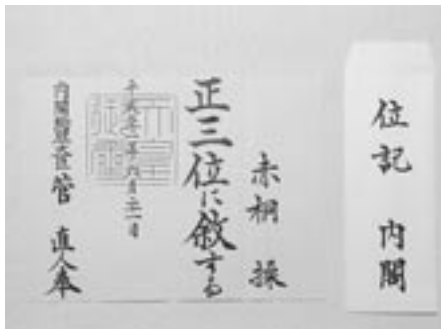 位記 内閣
赤桐 操
正三位に叙する
平成二十二年六月二十一日
内閣総理大臣 菅 直人 奉